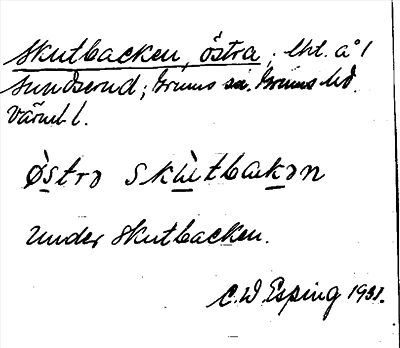 Skutbacken, östra; lht. å 1
Sundserud; Grums sn. Grums hd.
Värml l.
östrə skutbakən
under Skutbacken.
C. W. Esping 1931.